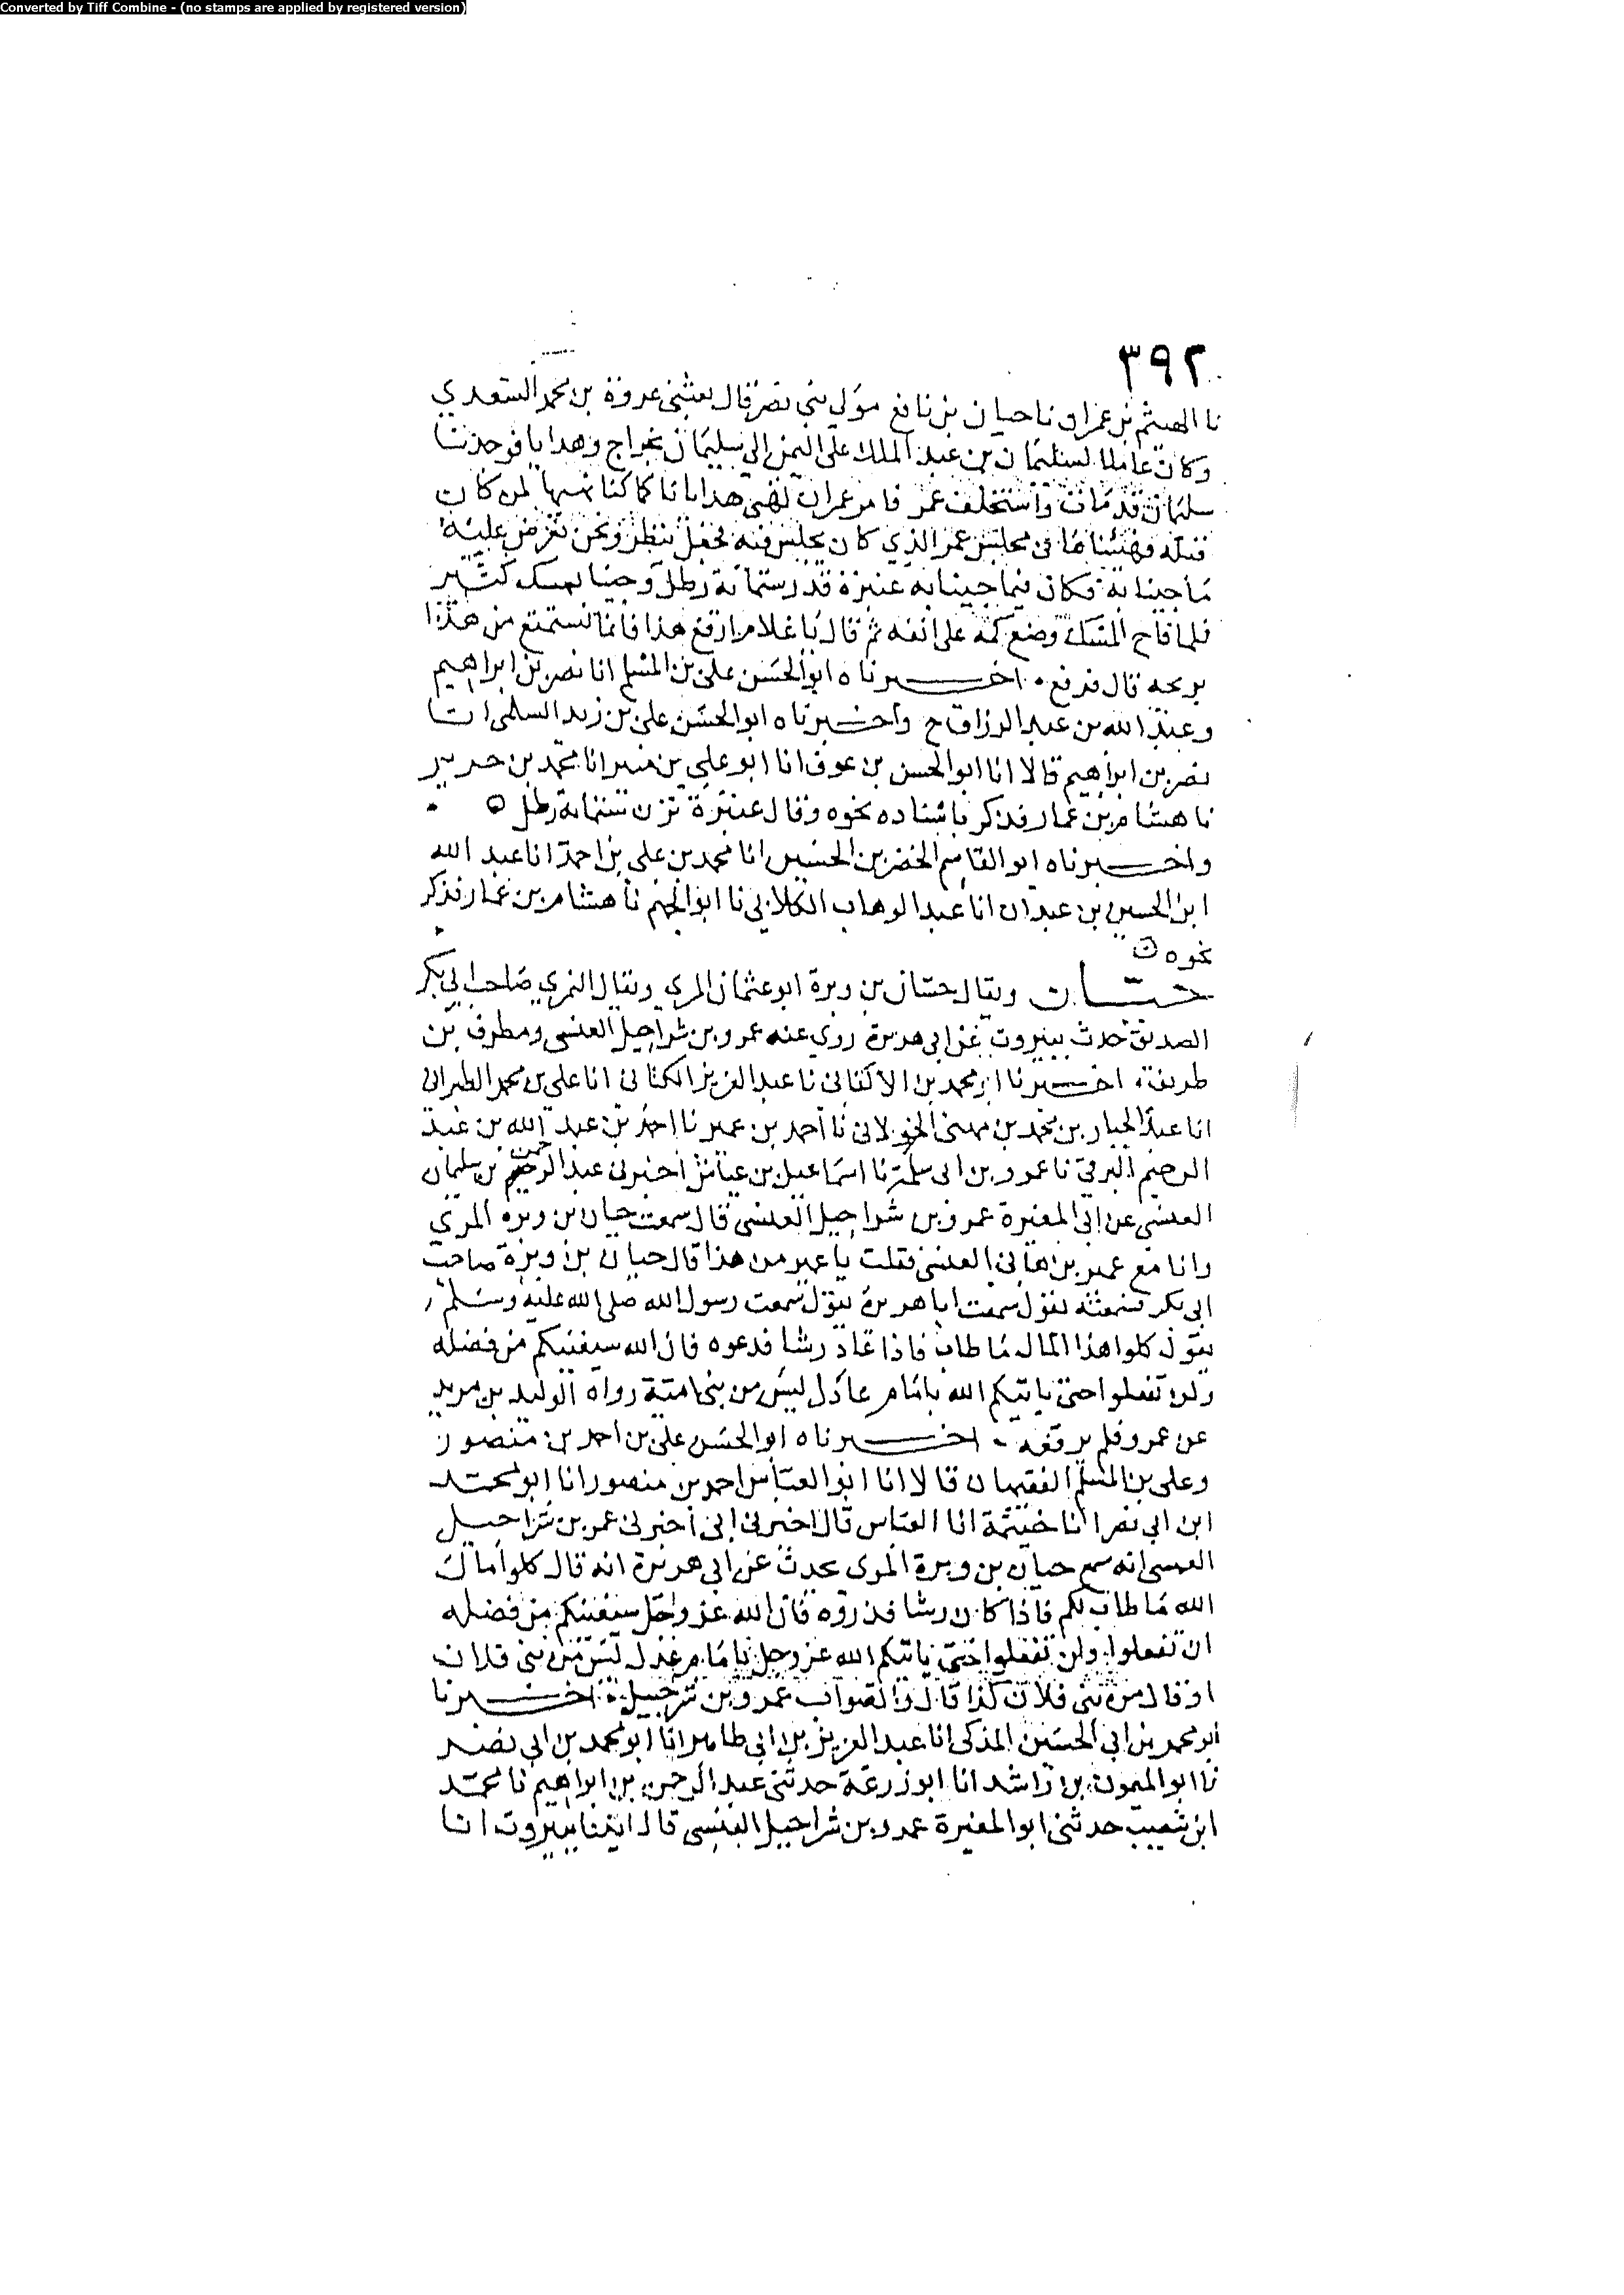 Converted by Tiff Combine - (no stamps are applied by registered version)
٣٩٢
نا الهيثم بن عمران نا حيان بن نافع مولى بني نصر قال بعثني عروة بن محمد السعدي
وكان عاملا لسليمان بن عبد الملك على اليمن الى سليمان بخراج وهدايا فوجدنا
سليمان قد مات واستخلف عمر فامر عمران نهيئ هدايانا كما كنا نهيها لمن كان
قبله فهيئناها في مجلس عمر الذي كان يجلس فيه فجعل ينظر ونحن نعرض عليه
ما جينا به فكان فيما جينا به عنبرة قدر ستمائة رطل وجينا بمسك كثير
فلما فاح المسك وضع كمه على انفه ثم قال يا غلام ارفع هذا فانما نستمتع من هذا
بريحه قال فرفع . اخبرناه ابو الحسن علي بن المسلم انا نصر بن ابراهيم
وعبد الله بن عبد الرزاق ح واخبرناه ابو الحسن علي بن زيد السلمي انا
نصر بن ابراهيم قالا انا ابو الحسن بن عوف انا ابو علي بن منير انا محمد بن خريم
نا هشام بن عمار فذكر باسناده نحوه وقال عنبرة تزن ستمائة رطل ه
واخبرناه ابو القاسم الخضر بن الحسين انا محمد بن علي بن احمد انا عبد الله
ابن الحسين بن عبدان انا عبد الوهاب الكلابي نا ابو الجهم نا هشام بن عمار فذكر
نحوه ه
حيان ويقال حسان بن وبرة ابو عثمان المري ويقال النمري صاحب ابي بكر
الصديق حدث ببيروت عن ابي هريرة روى عنه عمرو بن شراحيل العنسي ومطرف بن
طريف . اخبرنا ابو محمد بن الاكفاني نا عبد العزيز الكتاني انا علي بن محمد الطبراني
انا عبد الجبار بن محمد بن مهنى الخولاني نا احمد بن عمير نا احمد بن عبد الله بن عبد
الرحيم البرقي نا عمرو بن ابي سلمة نا اسماعيل بن عياش اخبرني عبد الرحمن بن سليمان
العنسي عن ابي المغيرة عمرو بن شراحيل العنسي قال سمعت حيان بن وبره المري
وانا مع عمير بن هاني العنسي فقلت يا عمير من هذا قال حيان بن وبرة صاحب
ابي بكر فسمعته يقول سمعت ابا هريرة يقول سمعت رسول الله صلى الله عليه وسلم
يقول كلوا هذا المال ما طاب فاذا عاد رشا فدعوه فان الله سيغنيكم من فضله
ولن تفعلوا حتى ياتيكم الله بامام عادل ليس من بني امية رواه الوليد بن مزيد
عن عمرو فلم يرفعه . اخبرناه ابو الحسن علي بن احمد بن منصور
وعلي بن المسلم الفقيهان قالا انا ابو العباس احمد بن منصور انا ابو محمد
ابن ابي نصر انا خيثمة انا العباس قال اخبرني ابي اخبرني عمر بن شراحيل
العنسي انه سمع حيان بن وبرة المري يحدث عن ابي هريرة انه قال كلوا مال
الله ما طاب لكم فاذا كان رشا فذروه فان الله عز وجل سيغنيكم من فضله
ان تفعلوا ولن تفعلوا حتى ياتيكم الله عز وجل بامام عدل ليس من بني فلان
او قال من بني فلان كذا قال والصواب عمرو بن شرحبيل . اخبرنا
ابو محمد بن ابي الحسين المزكي انا عبد العزيز بن ابي طاهر انا ابو محمد بن ابي نصر
نا ابو الميمون بن راشد انا ابو زرعة حدثني عبد الرحمن بن ابراهيم نا محمد
ابن شعيب حدثني ابو المغيرة عمرو بن شراحيل العنسي قال اتينا بيروت انا